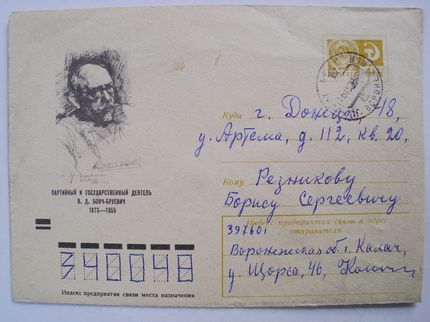 ПАРТИЙНЫЙ И ГОСУДАРСТВЕННЫЙ ДЕЯТЕЛЬ
В. Д. БОНЧ-БРУЕВИЧ
1873—1955
Куда г. Донецк 48,
у. Артема, д. 112, кв. 20,
Кому Резникову
Борису Сергеевичу
Индекс предприятия связи и адрес
отправителя
397601
Воронежская об. г. Калач,
у. Щорса, 46,
340048
Индекс предприятия связи места назначения